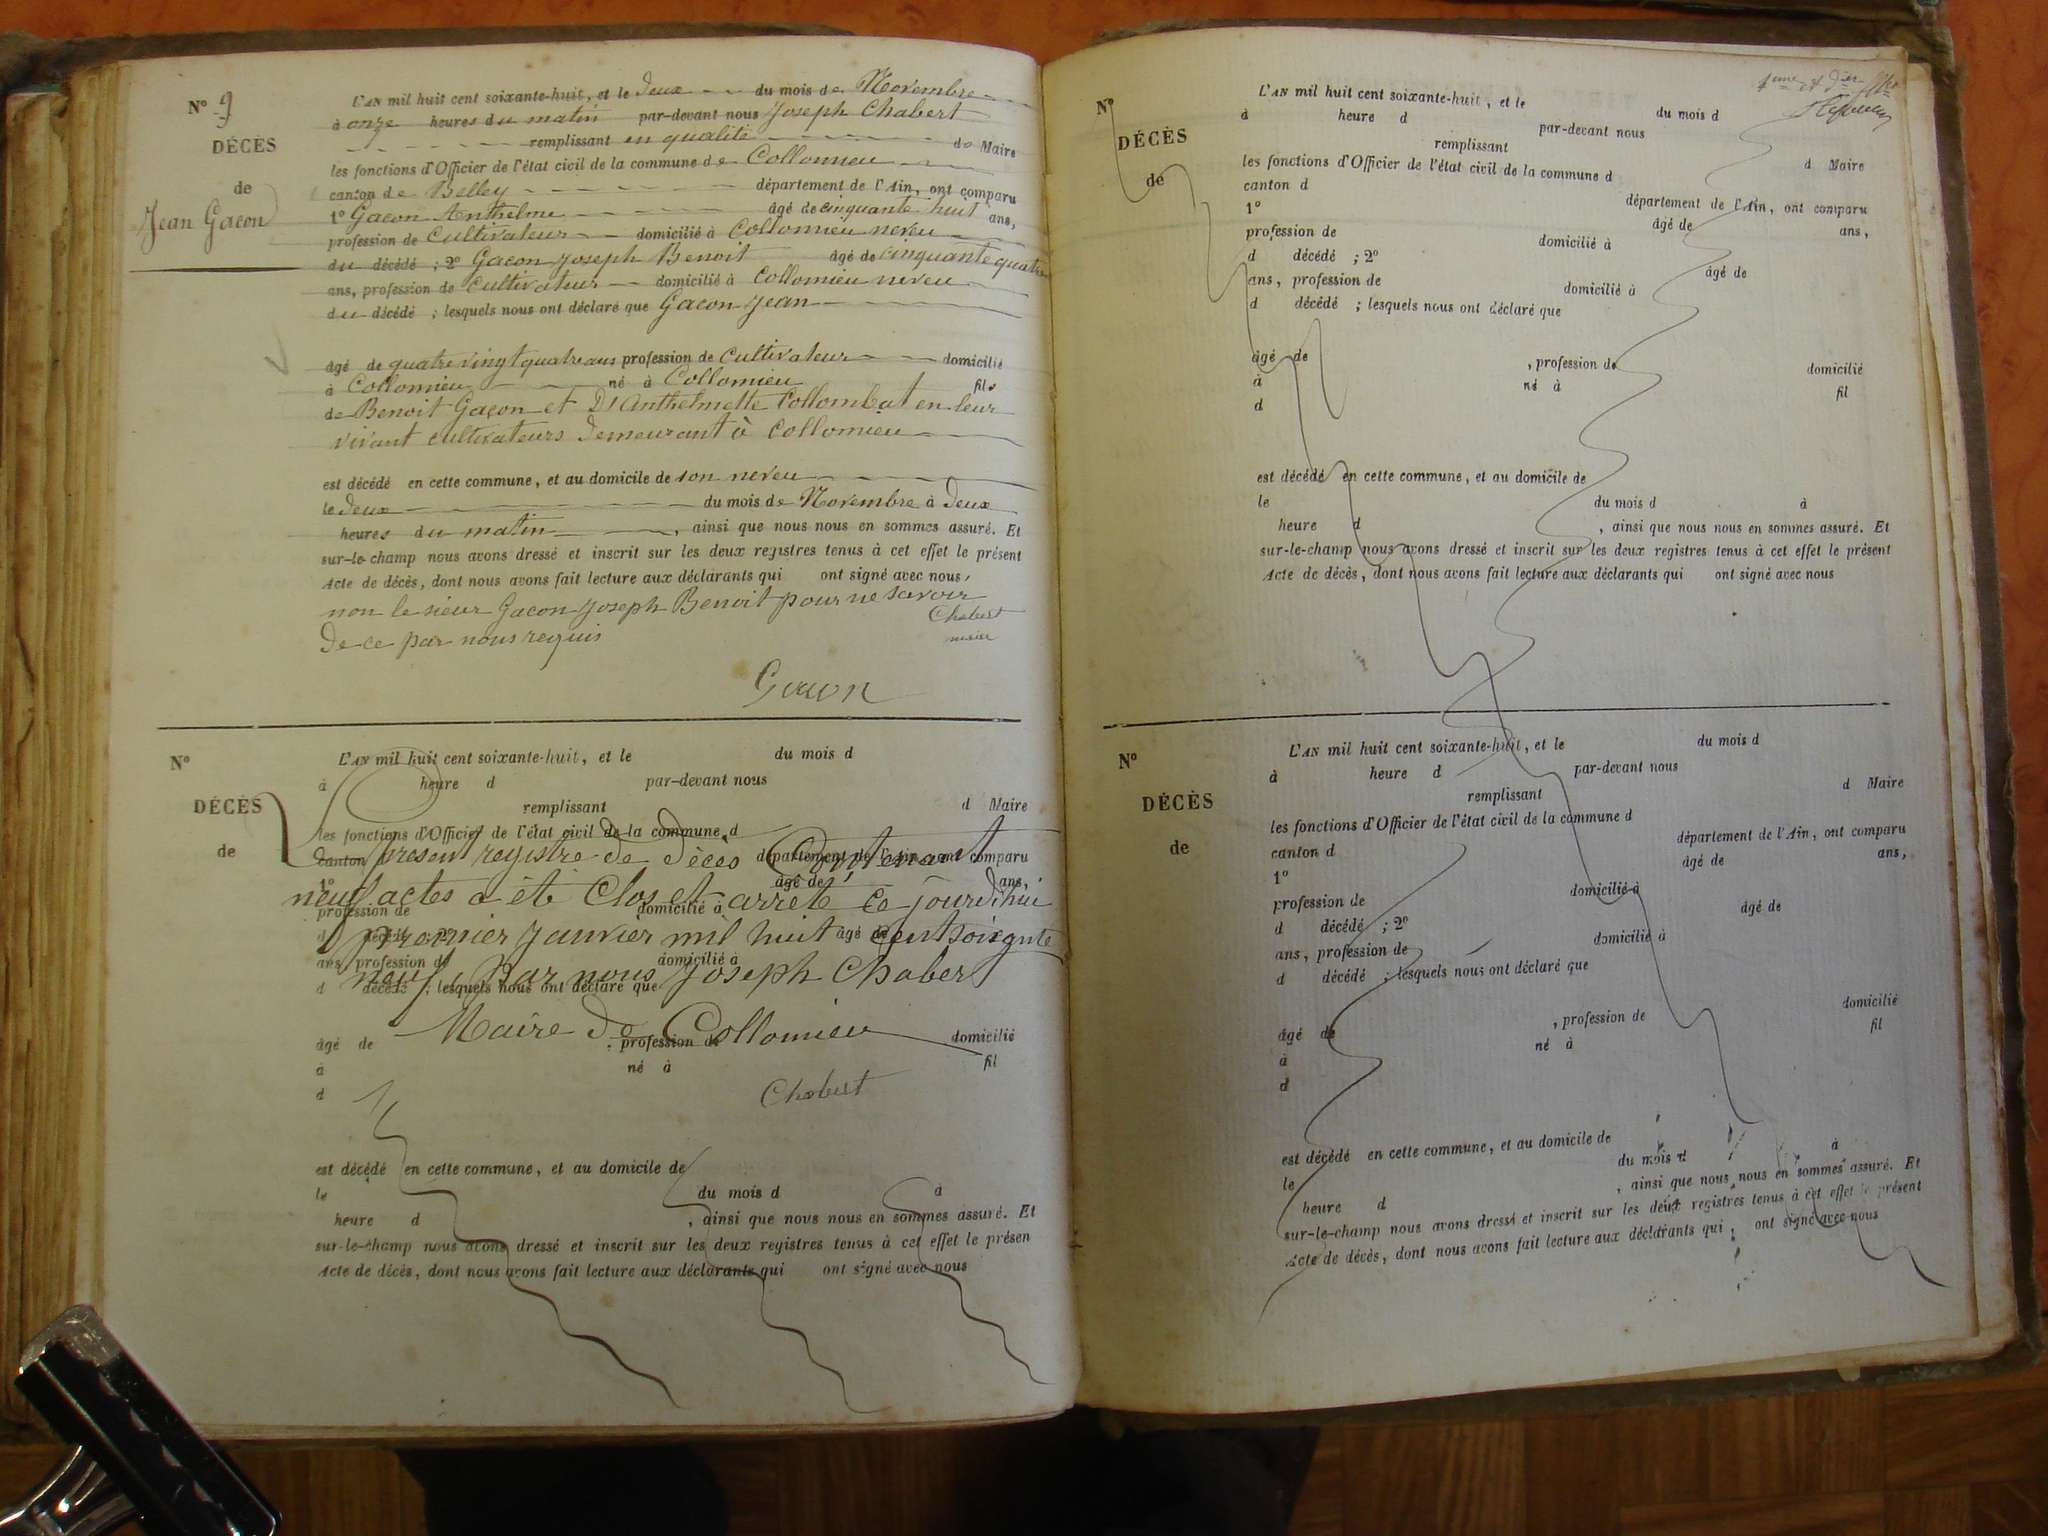 N° 9
DÉCÈS
de
Jean Gacon
L'AN mil huit cent soixante-huit, et le deux du mois de Novembre
à onze heures du matin par-devant nous Joseph Chabert
remplissant en qualité de Maire
les fonctions d'Officier de l'état civil de la commune de Collomieu
canton de Belley département de l'Ain, ont comparu
1° Gacon Anthelme âgé de cinquante huit ans,
profession de cultivateur domicilié à Collomieu neveu
du décédé ; 2° Gacon Joseph Benoit âgé de cinquante quatre
ans, profession de cultivateur domicilié à Collomieu neveu
du décédé ; lesquels nous ont déclaré que Gacon Jean
âgé de quatre vingt quatre ans profession de cultivateur domicilié
à Collomieu né à Collomieu fils
de Benoit Gacon et D' Anthelmette Collombat en leur
vivant cultivateurs demeurant à Collomieu
est décédé en cette commune, et au domicile de son neveu
le deux du mois de Novembre à deux
heures du matin, ainsi que nous nous en sommes assuré. Et
sur-le-champ nous avons dressé et inscrit sur les deux registres tenus à cet effet le présent
Acte de décès, dont nous avons fait lecture aux déclarants qui ont signé avec nous,
non le sieur Gacon Joseph Benoit pour ne savoir
de ce par nous requis
Chabert
maire
Gacon
N°
DÉCÈS
de
L'AN mil huit cent soixante-huit, et le du mois d
à heure d par-devant nous
remplissant d Maire
les fonctions d'Officier de l'état civil de la commune d
canton d département de l'Ain, ont comparu
1° âgé de ans,
profession de domicilié à
d décédé ; 2° âgé de
ans, profession de domicilié à
d décédé ; lesquels nous ont déclaré que
Le présent registre de décès Contenant
neuf actes a été Clos et arrêté ce jourd'hui
premier Janvier mil huit cent soixante
neuf, Par nous Joseph Chabert
Maire de Collomieu
Chabert
âgé de , profession de domicilié
à né à fil
d
est décédé en cette commune, et au domicile de
le du mois d à
heure d , ainsi que nous nous en sommes assuré. Et
sur-le-champ nous avons dressé et inscrit sur les deux registres tenus à cet effet le présen
Acte de décès, dont nous avons fait lecture aux déclarants qui ont signé avec nous
4eme et der
N°
DÉCÈS
de
L'AN mil huit cent soixante-huit, et le du mois d
à heure d par-devant nous
remplissant d Maire
les fonctions d'Officier de l'état civil de la commune d
canton d département de l'Ain, ont comparu
1° âgé de ans,
profession de domicilié à
d décédé ; 2° âgé de
ans, profession de domicilié à
d décédé ; lesquels nous ont déclaré que
âgé de , profession de domicilié
à né à fil
d
est décédé en cette commune, et au domicile de
le du mois d à
heure d , ainsi que nous nous en sommes assuré. Et
sur-le-champ nous avons dressé et inscrit sur les deux registres tenus à cet effet le présent
Acte de décès, dont nous avons fait lecture aux déclarants qui ont signé avec nous
N°
DÉCÈS
de
L'AN mil huit cent soixante-huit, et le du mois d
à heure d par-devant nous
remplissant d Maire
les fonctions d'Officier de l'état civil de la commune d
canton d département de l'Ain, ont comparu
1° âgé de ans,
profession de domicilié à
d décédé ; 2° âgé de
ans, profession de domicilié à
d décédé ; lesquels nous ont déclaré que
âgé de , profession de domicilié
à né à fil
d
est décédé en cette commune, et au domicile de
le du mois d à
heure d , ainsi que nous nous en sommes assuré. Et
sur-le-champ nous avons dressé et inscrit sur les deux registres tenus à cet effet le présent
Acte de décès, dont nous avons fait lecture aux déclarants qui ont signé avec nous